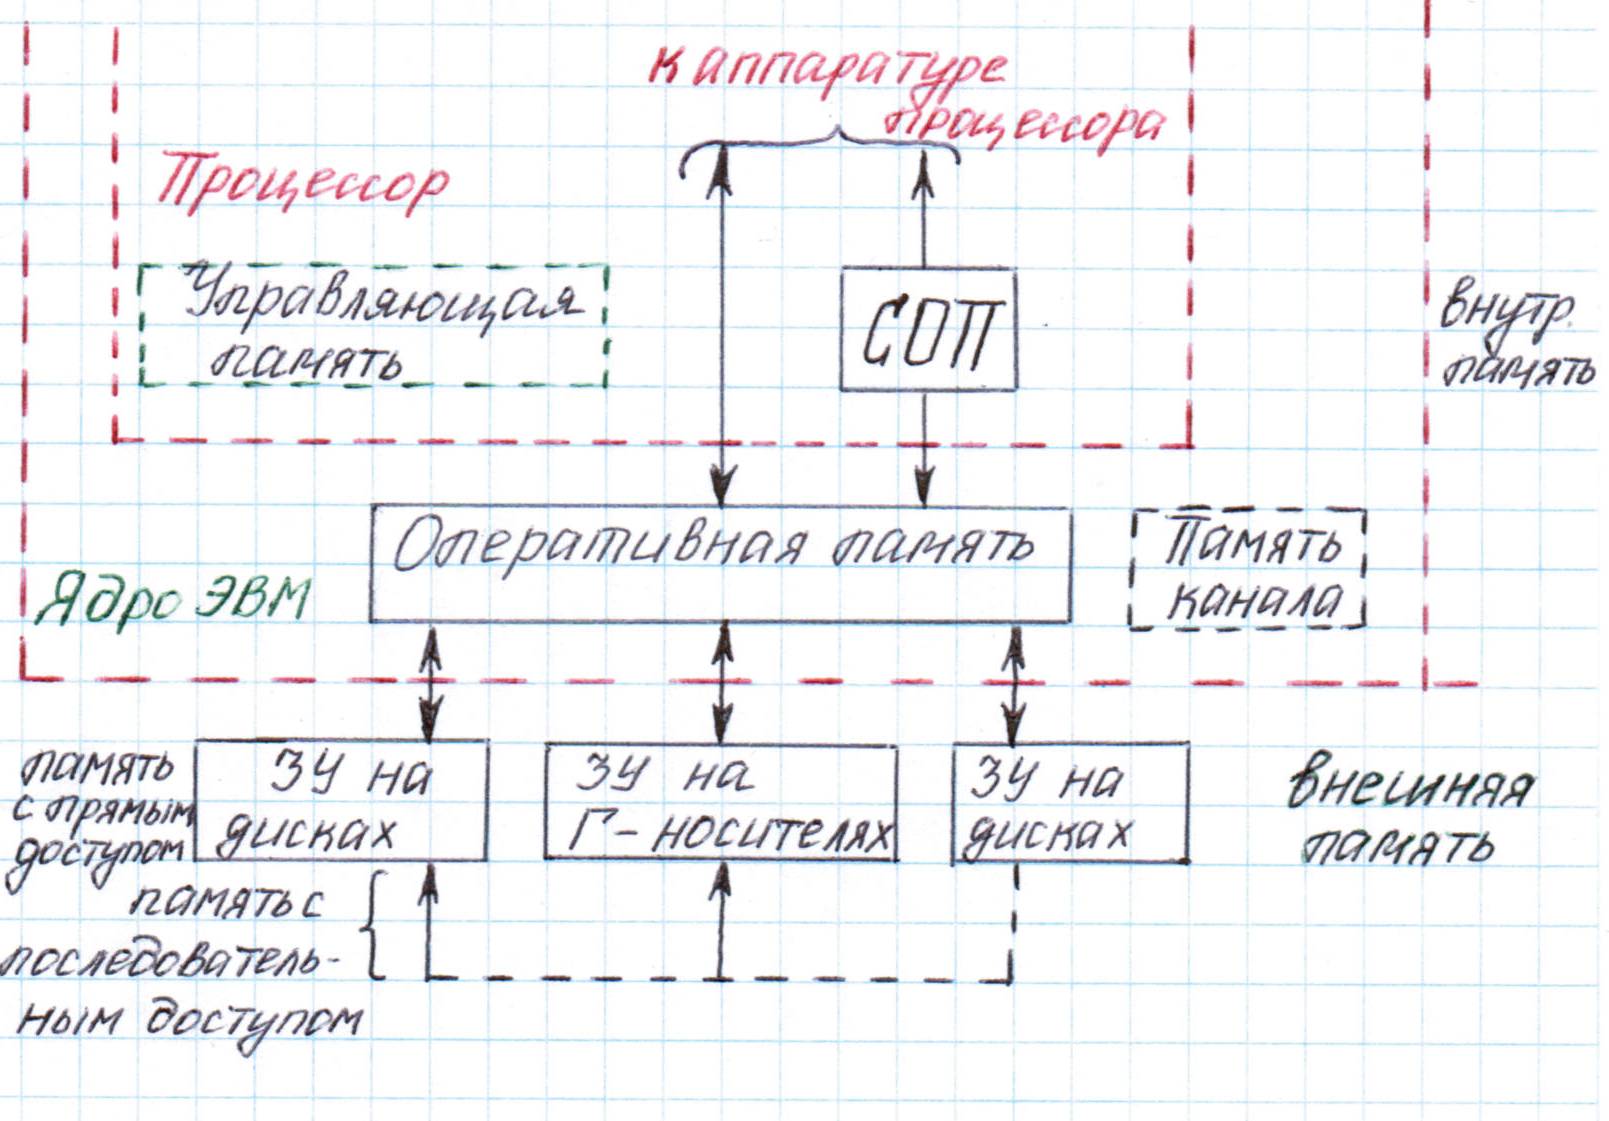 к аппаратуре
процессора
Процессор
Управляющая
память
СОП
внутр.
память
Оперативная память
Память
канала
Ядро ЭВМ
память
с прямым
доступом
ЗУ на
дисках
ЗУ на
Г-носителях
ЗУ на
дисках
внешняя
память
память с
последователь-
ным доступом